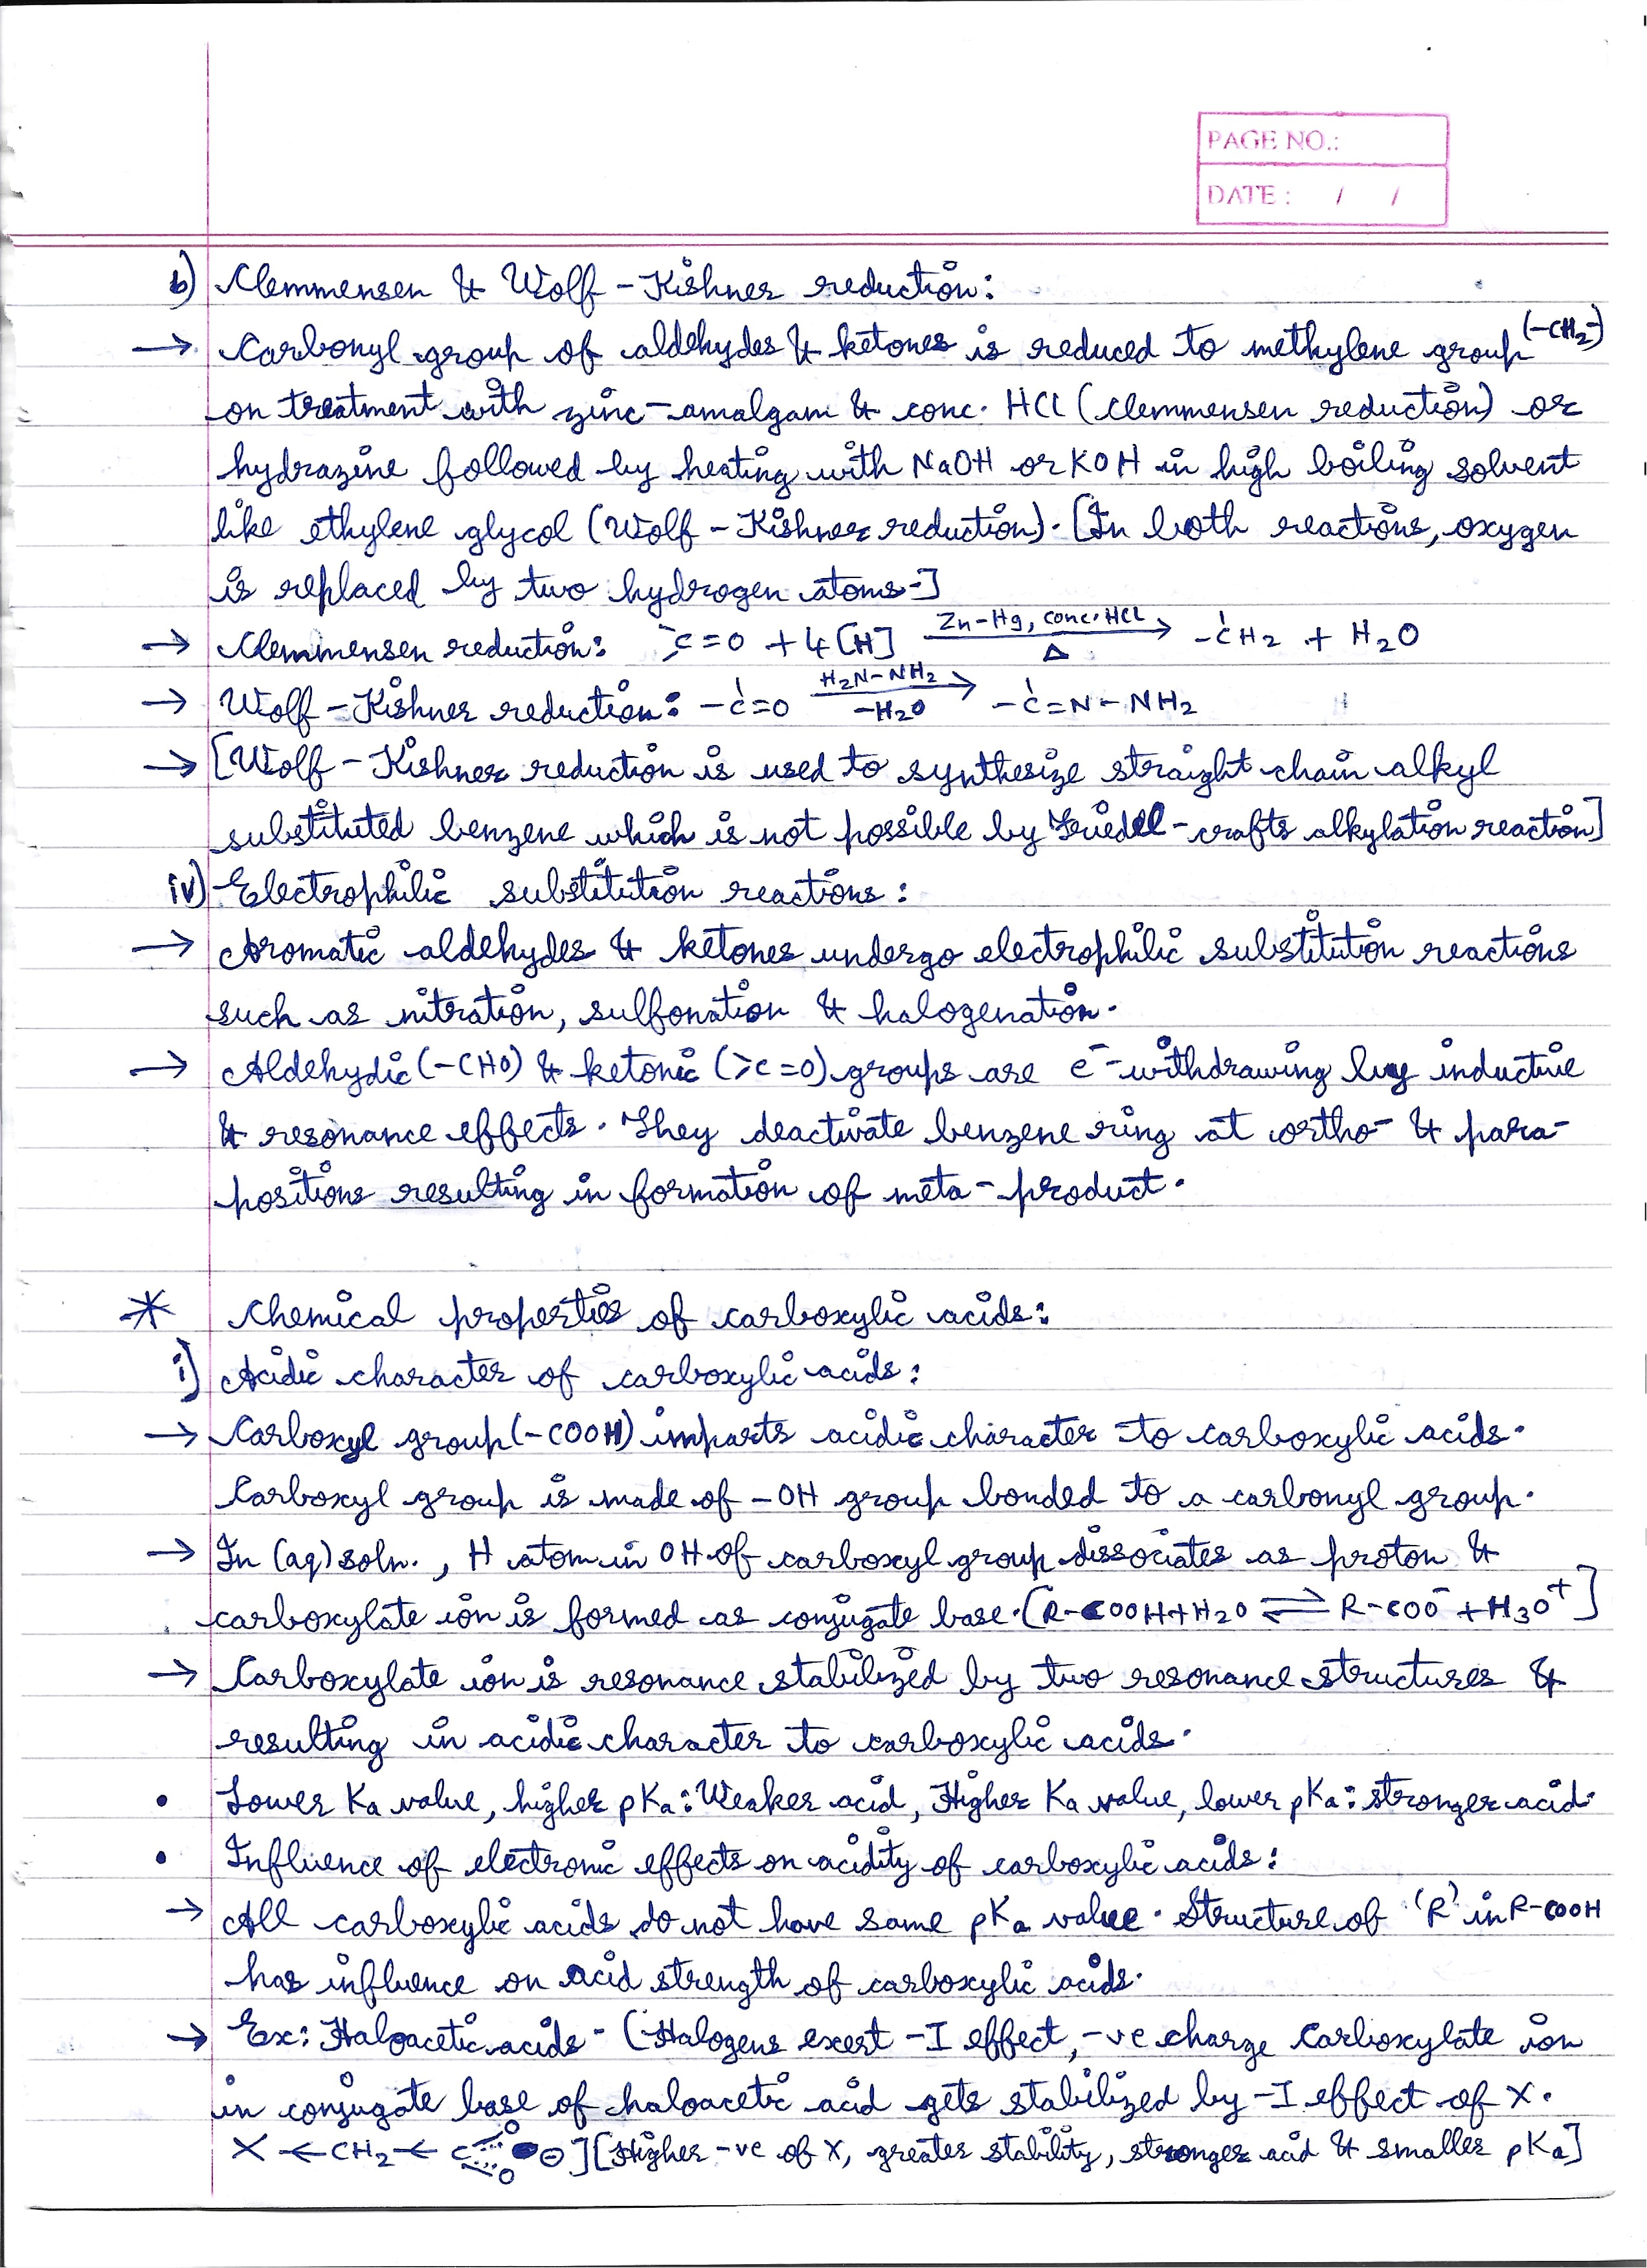 PAGE NO.:
DATE : / /
b) Clemmensen & Wolf-Kishner reduction:
→ Carbonyl group of aldehydes & ketones is reduced to methylene group (-CH2-)
on treatment with zinc-amalgam & conc. HCl (clemmensen reduction) or
hydrazine followed by heating with NaOH or KOH in high boiling solvent
like ethylene glycol (Wolf-Kishner reduction). [In both reactions, oxygen
is replaced by two hydrogen atoms-]
→ Clemmensen reduction: >C=O + 4[H] Zn-Hg, conc.HCl → Δ -CH2 + H2O
→ Wolf-Kishner reduction: -C=O H2N-NH2 → -H2O -C=N-NH2
→ [Wolf-Kishner reduction is used to synthesize straight chain alkyl
substituted benzene which is not possible by Friedel-crafts alkylation reaction]
iv) Electrophilic substitution reactions:
→ Aromatic aldehydes & ketones undergo electrophilic substitution reactions
such as nitration, sulfonation & halogenation.
→ Aldehydic (-CHO) & ketonic (>C=O) groups are e⁻-withdrawing by inductive
& resonance effects. They deactivate benzene ring at ortho- & para-
positions resulting in formation of meta-product.
* Chemical properties of carboxylic acids:
i) Acidic character of carboxylic acids:
→ Carboxyl group (-COOH) imparts acidic character to carboxylic acids.
Carboxyl group is made of -OH group bonded to a carbonyl group.
→ In (aq) soln., H atom in OH of carboxyl group dissociates as proton &
carboxylate ion is formed as conjugate base. [R-COOH+H2O ⇌ R-COO⁻ + H3O⁺]
→ Carboxylate ion is resonance stabilized by two resonance structures &
resulting in acidic character to carboxylic acids.
• Lower Ka value, higher pKa: Weaker acid, Higher Ka value, lower pKa: stronger acid.
• Influence of electronic effects on acidity of carboxylic acids:
→ All carboxylic acids do not have same pKa value. Structure of 'R' in R-COOH
has influence on acid strength of carboxylic acids.
→ Ex: Haloacetic acids - (Halogens exert -I effect, -ve charge Carboxylate ion
in conjugate base of haloacetic acid gets stabilized by -I effect of X.
X ← CH2 ← C O O ⊖] [Higher -ve of X, greater stability, stronger acid & smaller pKa]